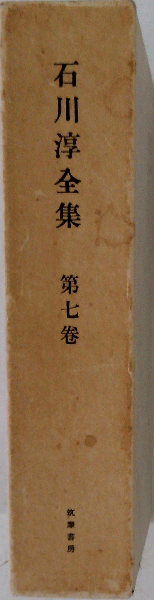 石川淳全集
第七卷
筑摩書房